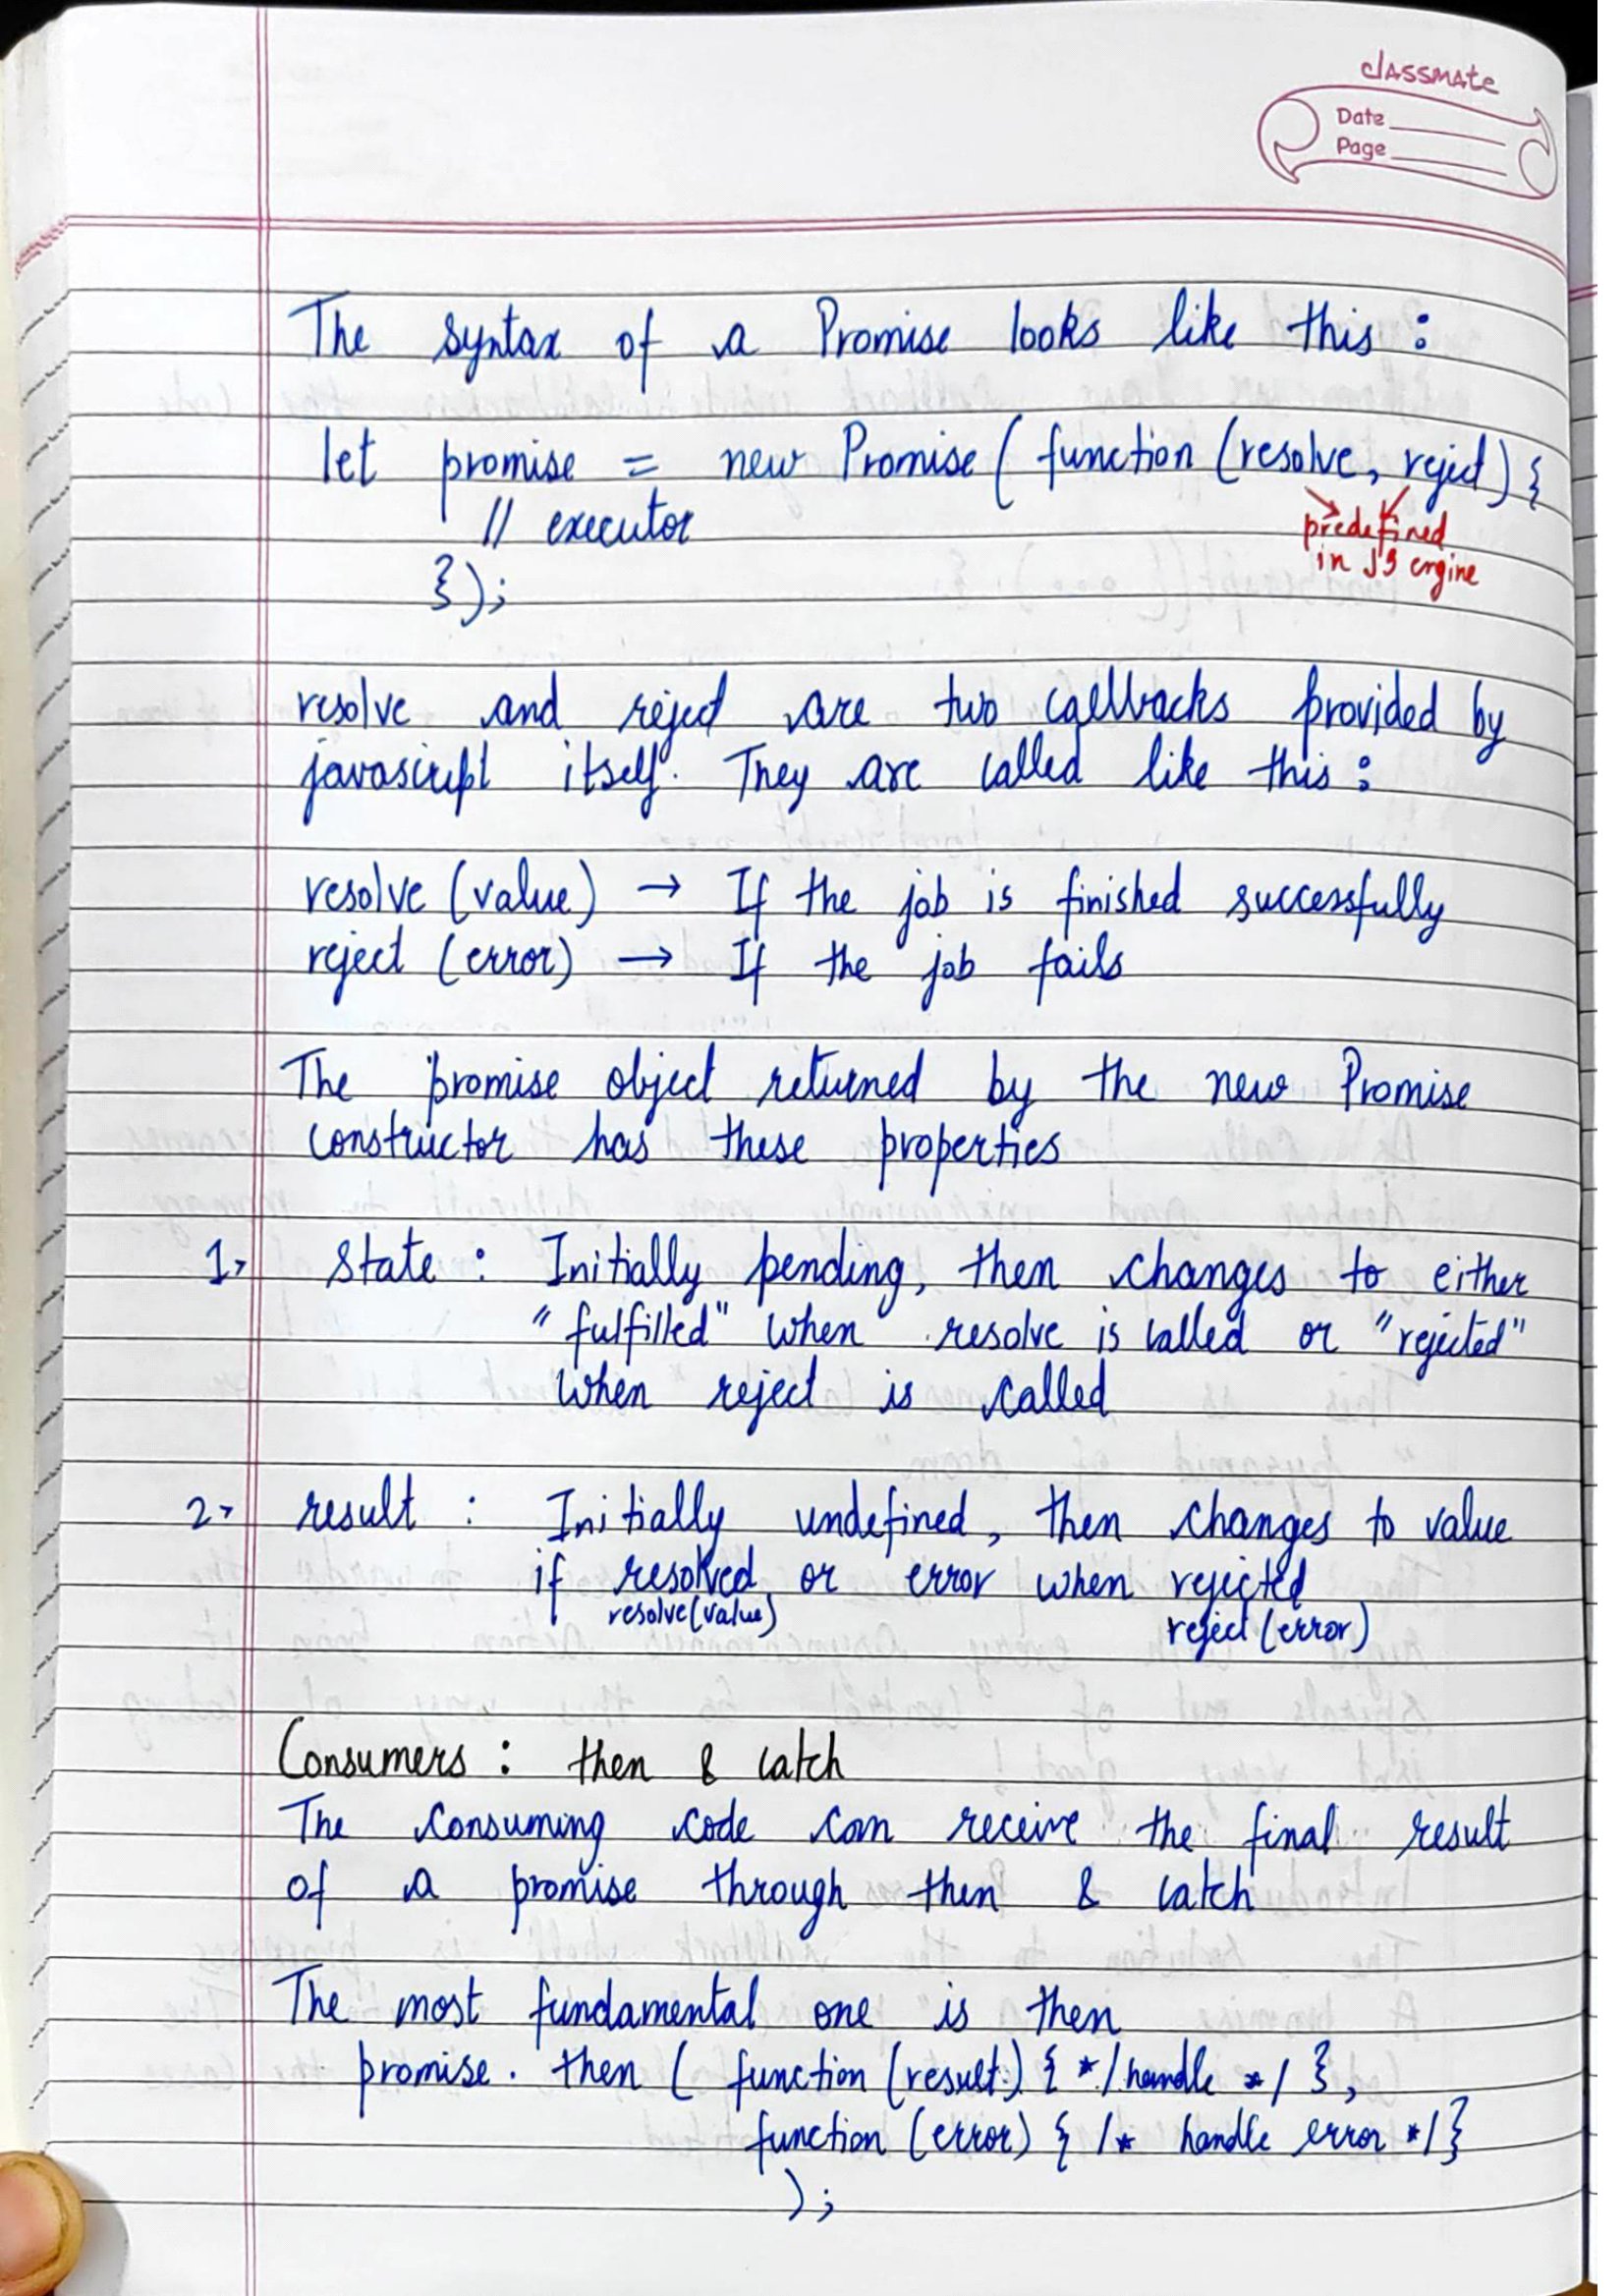 classmate
Date
Page
The syntax of a Promise looks like this :
let promise = new Promise ( function (resolve, reject) {
// executor
predefined
in JS engine
});
resolve and reject are two callbacks provided by
javascript itself. They are called like this :
resolve (value) → If the job is finished successfully
reject (error) → If the job fails
The promise object returned by the new Promise
constructor has these properties
1, state : Initially pending, then changes to either
"fulfilled" when resolve is called or "rejected"
when reject is called
2, result : Initially undefined, then changes to value
if resolved or error when rejected
resolve(value) reject (error)
Consumers : then & catch
The consuming code can receive the final result
of a promise through then & catch
The most fundamental one is then
promise. then ( function (result) { */ handle */ },
function (error) { /* handle error */}
);